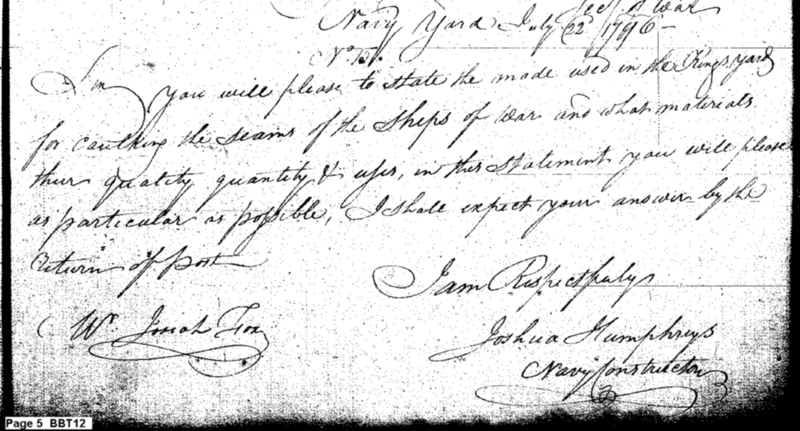 Secy of War
Navy Yard July 22d 1796 —
No. 151.
Sir you will please to state the mode used in the Kings yard
for caulking the seams of the Ships of War and what materials
their quality quantity & uses, in this statement you will please
as particular as possible, I shall expect your answer by the
return of post
I am Respectfuly
Mr. Josiah Fox
Joshua Humphreys
Navy Constructor
Page 5 BBT12